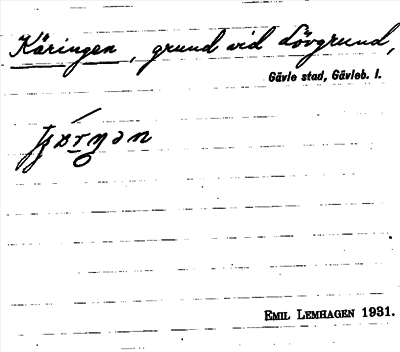 Käringen, grund vid Lövgrund,
Gävle stad, Gävleb. l.
EMIL LEMHAGEN 1931.